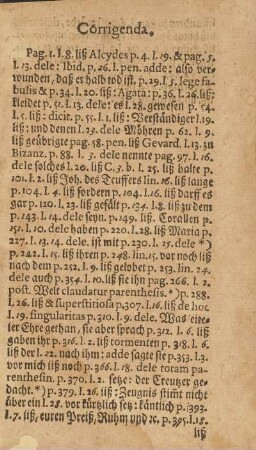 Corrigenda.
Pag. 1. l. 8. liß Alcydes p. 4. l. 19. & pag. 5.
l. 13. dele: Ibid. p. 26. l. pen. adde: also ver-
wunden, daß er halb tod ist. p. 29. l. 5. lege fa-
bulis & p. 34. l. 20. liß: Agata: p. 36. l. 26. liß:
kleidet p. 51. l. 13. dele: es l. 28. gewesen p. 54.
l. 5. liß: dicit. p. 55. l. 1. liß: Verständiger l. 19.
liß: und denen l. 23. dele Möhren p. 62. l. 9.
liß geübrigte pag. 58. pen. liß Gevard. l. 13. zu
Bizanz. p. 88. l. 3. dele nennte pag. 97. l. 16.
dele solches l. 20. liß C. 3. b. l. 25. liß halte p.
101. l. 2. liß Joh. des Truffers lin. 16. liß lauge
p. 104. l. 4. liß fordern p. 104. l. 16. liß darf es
gar p. 120. l. 23. liß gefält p. 134. l. 8. liß zu dem
p. 143. l. 14. dele seyn. p. 149. liß. Corallen p.
151. l. 10. dele haben p. 220. l. 28. liß Maria p.
227. l. 13. 14. dele. ist mit p. 230. l. 25. dele *)
p. 242. l. 12. liß ihren p. 248. lin. 15. vor noch liß
nach dem p. 252. l. 9. liß gelobet p. 253. lin. 24.
dele auch p. 354. l. 10. liß sie ihn pag. 266. l. 2.
post. Welt claudatur parenthesis. *) p. 288.
l. 26. liß & superstitiosa p 307. l. 16. liß de hoc
l. 19. singularitas p 310. l. 9. dele. Was eite-
ler Ehre gethan, sie aber sprach p. 312. l. 6. liß
gaben ihr p 316. l. 2. liß tormenten p 318. l. 6.
liß der l. 12. nach ihm: adde sagte sie p. 353. l. 3.
vor mich liß noch p 366. l. 18. dele toram pa-
renthesin. p 370. l. 2. setze: der Creutzer ge-
dacht. *) p 379. l. 26. liß: Zeugnis stimt nicht
über ein l. 28. vor kürtzlich setz: käntlich p. 393.
l. 7. liß, euren Preiß, Ruhm und ꝛc. p. 395. l. 18.
liß